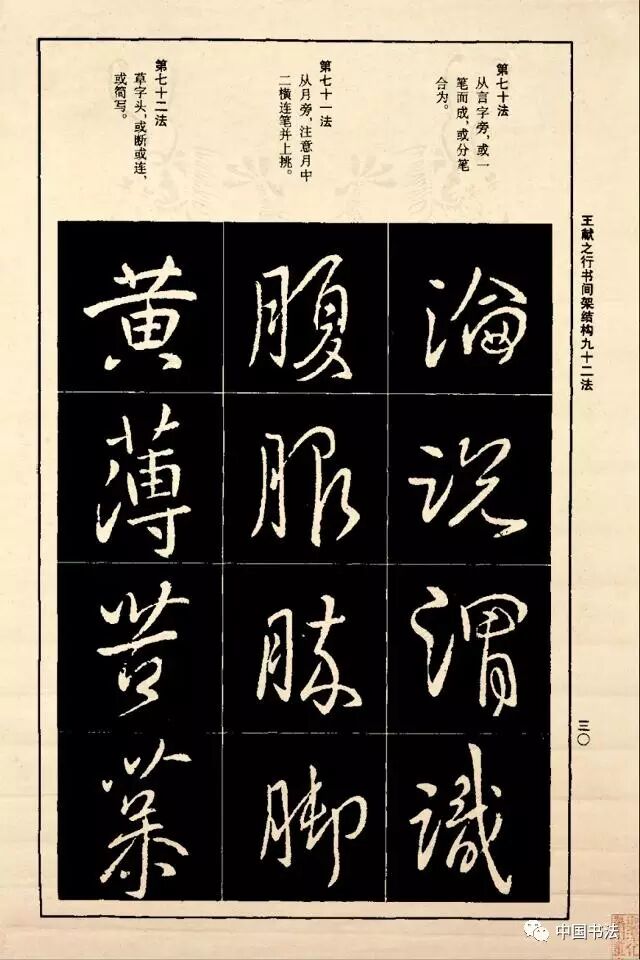 王献之行书间架结构九十二法
三〇
第七十法
从言字旁，或一
笔而成，或分笔
合为。
論説謂識
第七十一法
从月旁，注意月中
二横连笔并上挑。
腹服脚
第七十二法
草字头，或断或连，
或简写。
黄薄苦
中国书法